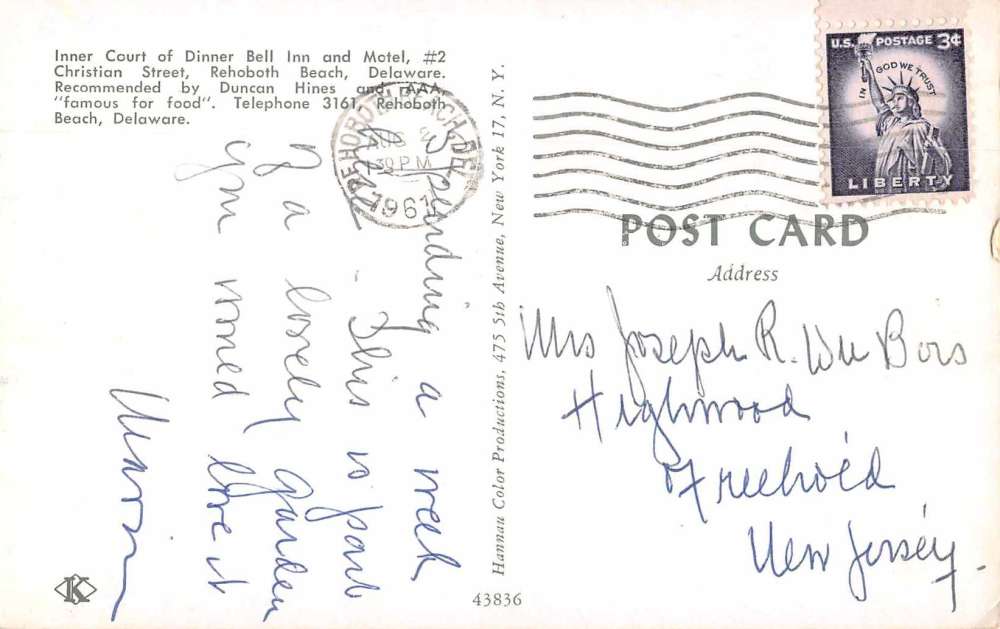 Inner Court of Dinner Bell Inn and Motel, #2
Christian Street, Rehoboth Beach, Delaware.
Recommended by Duncan Hines and AAA,
"famous for food". Telephone 3161, Rehoboth
Beach, Delaware.
REHOBOTH BEACH, DEL.
AUG
30 PM
1961
Spending a week
. This is part
of a lovely garden
you would love it
Hannau Color Productions, 475 5th Avenue, New York 17, N. Y.
U.S. POSTAGE 3¢
IN GOD WE TRUST
LIBERTY
POST CARD
Address
Mrs Joseph R. Du Bois
Highwood
Freehold
New Jersey.
K
43836